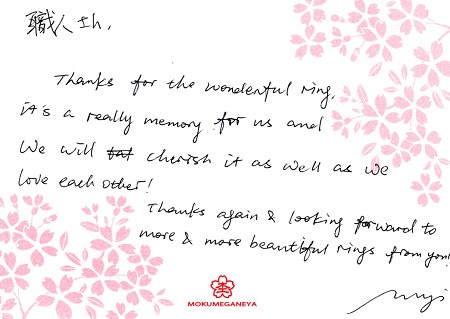 職人さん,
Thanks for the wonderful ring,
it's a really memory for us and
We will cherish it as well as we
love each other!
Thanks again & looking forward to
more & more beautiful rings from you!
MOKUMEGANEYA